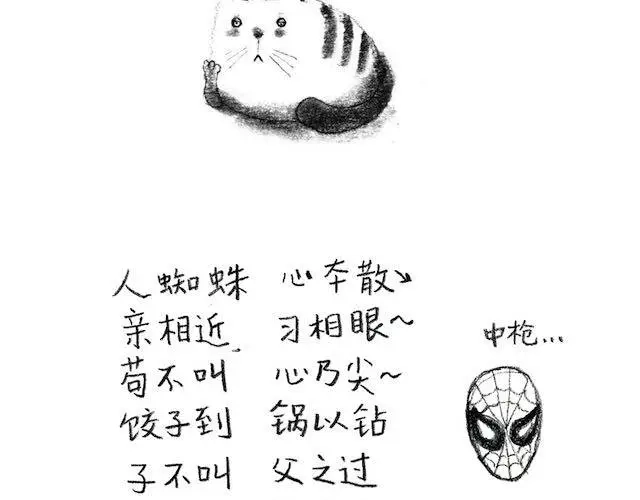 人蜘蛛 心夲散
亲相近 习相眼～
苟不叫 心乃尖～
饺子到 锅以钻
子不叫 父之过
中枪...